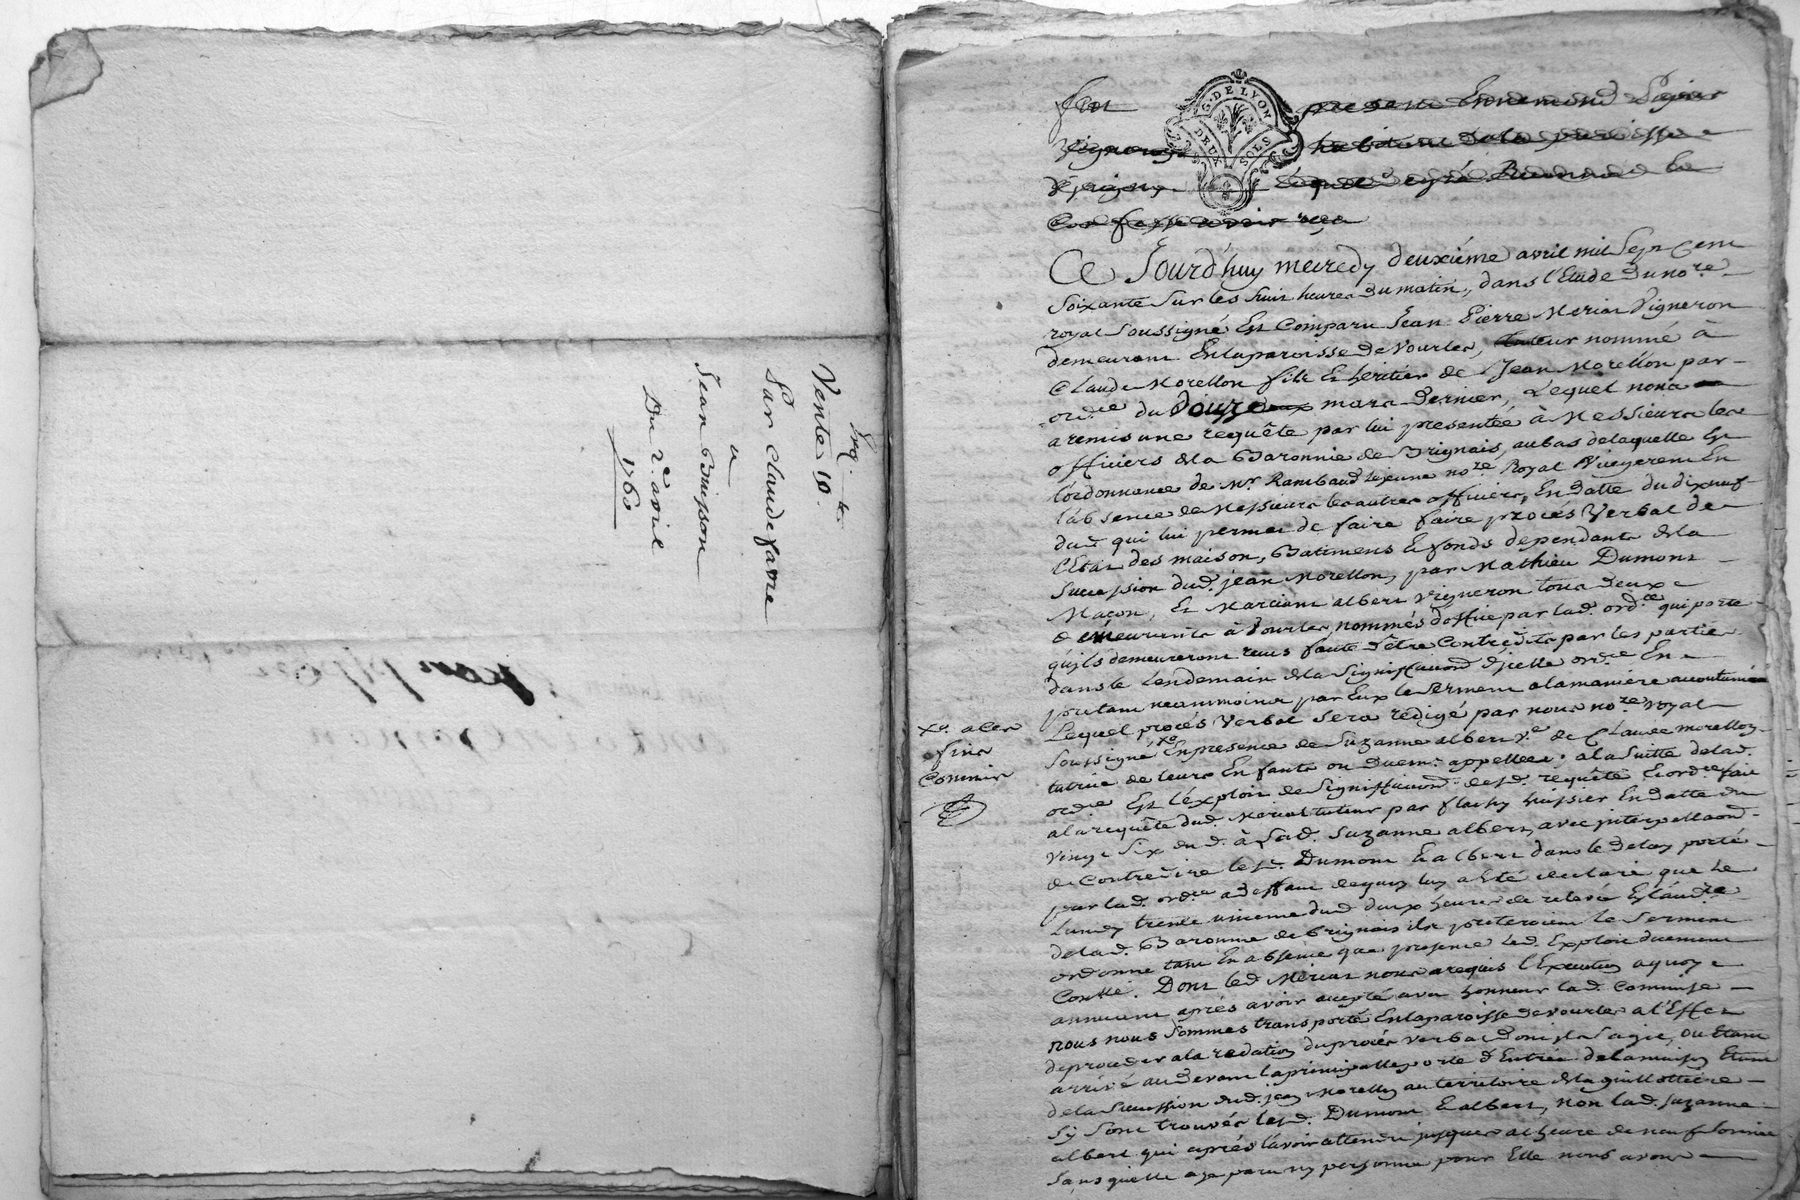 Vente 10.te
Par Claude favre
a
Jean Buisson
Du 2.e avril
1760
G. DE LYON
DEUX SOLS
fut present Ennemond
habitant de la paroisse
lequel de gré a Reconnu &
Confesse avoir reçu
Ce Jourd'huy mercredy deuxiéme avril mil Sept Cent
Soixante Sur les huit heures du matin, dans l'Etude du no.re
royal Soussigné Est Comparu Jean Pierre Meriat Vigneron
demeurant En la paroisse de Vourles, tuteur nommé à
Claude Morellon fils & heritier de Jean Morellon par
ord.ce du douze mars dernier, Lequel nous
a remis une requête par lui presentée à Messieurs les
officiers de la Baronnie de Brignais, au bas de laquelle Est
l'ordonnance de M.r Rambaud Lejeune no.re Royal Viegerent En
l'absence de Messieurs les autres officiers, En datte du dixneuf
dud. qui lui permet de faire faire procés Verbal de
l'Etat des maison, Batimens & fonds dependants de la
Succession dud. jean Morellon, par Mathieu Dumont
Maçon, Et Marciant albert Vigneron tous deux
demeurants à Vourles, nommés d'office par lad. ord.ce qui porte
qu'ils demeureront reçus faute d'être Contredits par les parties
dans le Lendemain de la Signiffication d'jcelle ord.ce En
pretant neanmoins par Eux le Serment a la maniere accoutumée
Lequel procés Verbal Sera redigé par nous no.re royal
Soussigné x.o En presence de Suzanne albert v.e de Claude morellon
x.o a ces
fins
Commis
tutrice de leurs Enfants ou duem.t appellée; a la Suitte de lad.
ord.ce Est l'exploit de Signiffication desd. requête & ord.ce fait
a la requête dud. Meriat tuteur par flachy huissier En datte du
vingt Six dud. à lad. Suzanne albert, avec jnterpellaon
de Contredire lesd. Dumont & albert dans le delay porté
par lad. ord.ce a deffaut dequoy luy a été declaré que le
Lundy trente unieme dud. deux heures de relevé En l'aud.ce
de lad. Baronnie de Brignais ils preteroient le Serment
ordonné tant En absence que presence led. Exploit duement
Conllé. Dont led. Meriat nous a requis l'Execution a quoy
annuant aprés avoir accepté avec honneur lad. Commise
nous nous Sommes transporté En la paroisse de vourles a l'Effet
de proceder a la redation du procés verbal dont jl s'agit, ou Etant
arrivé au devant la principalle porte d'Entrée de la maison Etant
de la Succession dud. jean Morellon au territoire de la guillottiere
Sy Sont trouvés lesd. Dumont & albert, non lad. Suzanne
albert qui aprés l'avoir attendu jusques a l'heure de neuf Sonnée
Sans quelle aye paru ny personne pour Elle nous avons